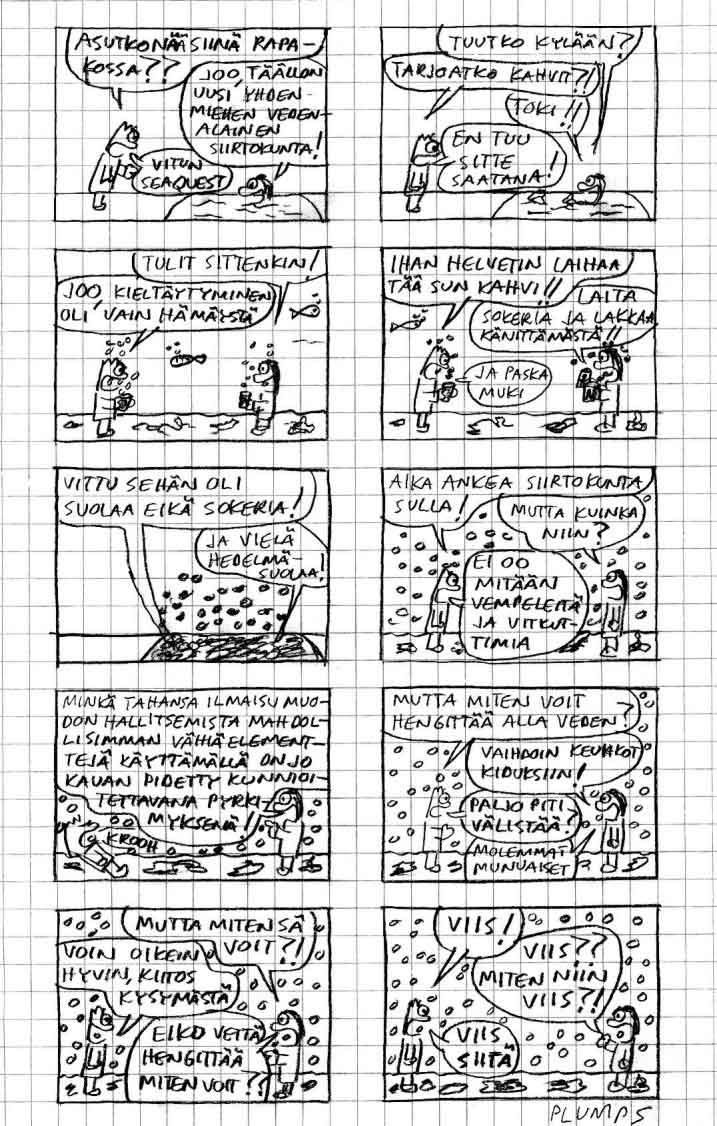 ASUTKO NÄÄ SIINÄ RAPA-
KOSSA??
JOO, TÄÄLLON
UUSI YHDEN-
MIEHEN VEDEN-
ALAINEN
SIIRTOKUNTA!
VITUN
SEAQUEST
TUUTKO KYLÄÄN?
TARJOATKO KAHVIT?!
TOKI!!
EN TUU
SITTE
SAATANA!
TULIT SITTENKIN!
JOO, KIELTÄYTYMINEN
OLI VAIN HÄMÄYSTÄ
IHAN HELVETIN LAIHAA
TÄÄ SUN KAHVI!!
LAITA
SOKERIA JA LAKKAA
KÄNITTÄMÄSTÄ!!
JA PASKA
MUKI
VITTU SEHÄN OLI
SUOLAA EIKÄ SOKERIA!
JA VIELÄ
HEDELMÄ-
SUOLAA!
AIKA ANKEA SIIRTOKUNTA
SULLA!
MUTTA KUINKA
NIIN?
EI OO
MITÄÄN
VEMPELEITÄ
JA VITKUT-
TIMIA
MINKÄ TAHANSA ILMAISUMUO-
DON HALLITSEMISTA MAHDOL-
LISIMMAN VÄHIÄ ELEMENT-
TEJÄ KÄYTTÄMÄLLÄ ON JO
KAUAN PIDETTY KUNNIOI-
TETTAVANA PYRKI-
MYKSENÄ!
KROOH
MUTTA MITEN VOIT
HENGITTÄÄ ALLA VEDEN?
VAIHDOIN KEUHKOT
KIDUKSIIN!
PALJO PITI
VÄLISTÄÄ?
MOLEMMAT
MUNUAISET
MUTTA MITEN SÄ
VOIT?!
VOIN OIKEIN
HYVIN, KIITOS
KYSYMÄSTÄ
EIKO VETTÄ
HENGITTÄÄ
MITEN VOIT??
VIIS!
VIIS??
MITEN NIIN
VIIS?!
VIIS
SIITÄ
PLUMPS